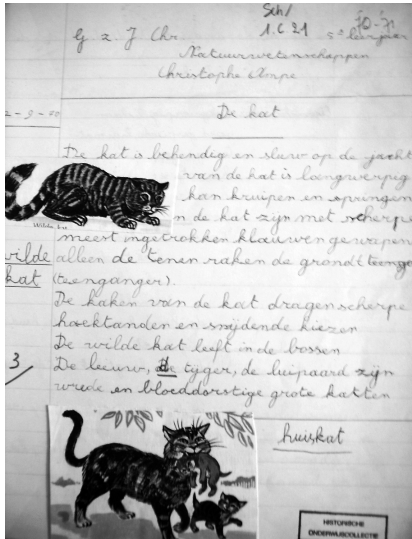 Sch/
1.C 21
70-71
G. z. J. Chr.
5e leerjaar
Natuurwetenschappen
Christophe Ampe
De kat
2-9-
De kat is behendig en sluw op de jacht
van de kat is langwerpig
kan kruipen en springen
n de kat zijn met scherpe
Wilde kat
meest ingetrokken klauwen gewapen
wilde alleen de tenen raken de grond
kat (teenganger).
De kaken van de kat dragen scherpe
hoektanden en snijdende kiezen
De wilde kat leeft in de bossen
3/
De leeuw, de tyger, de luipaard zijn
wrede en bloeddorstige grote katten
huiskat
HISTORISCHE
ONDERWIJSCOLLECTIE